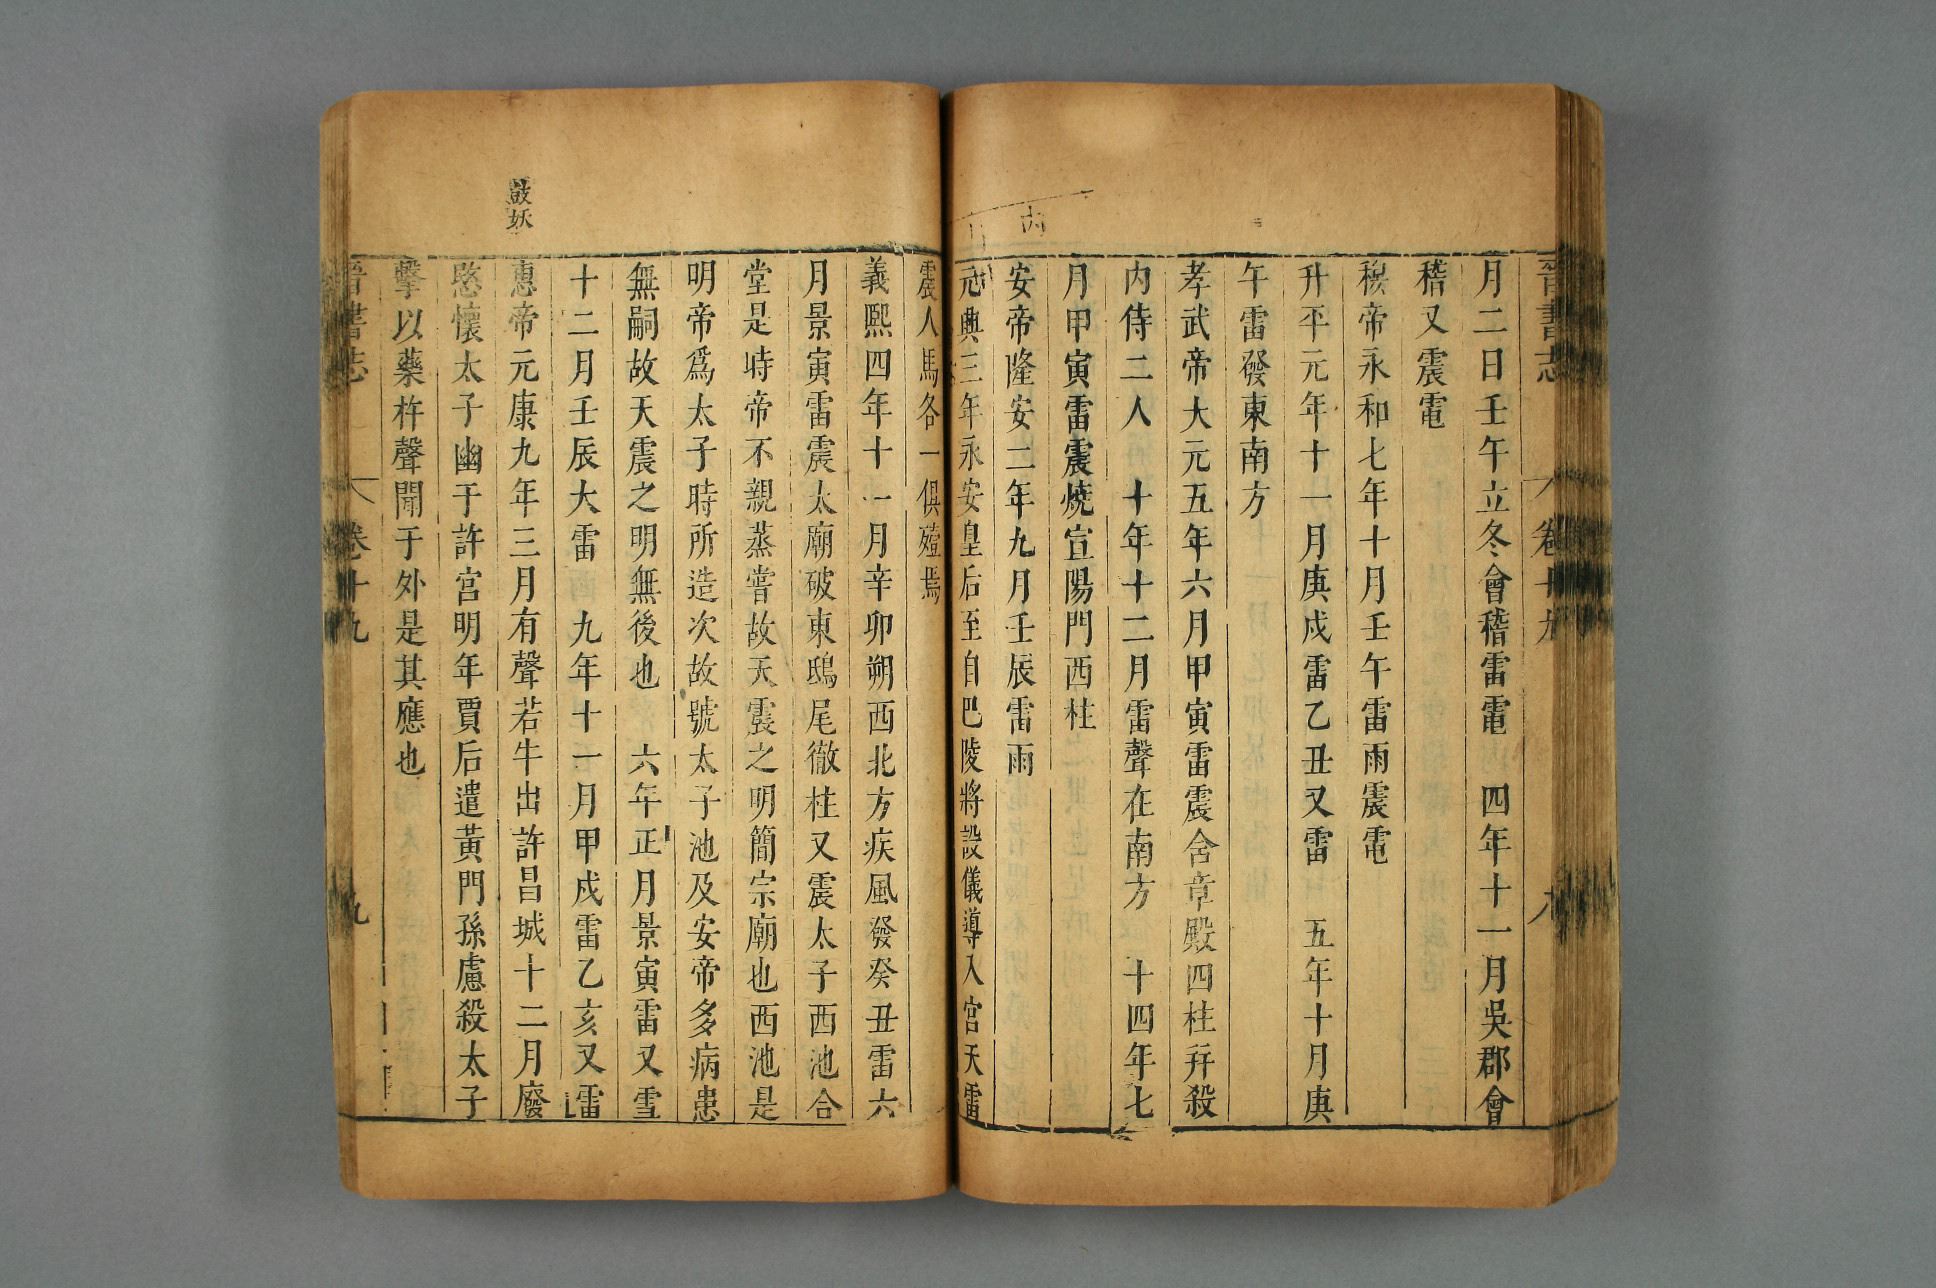 晉書志 卷十九 八
月二日壬午立冬會稽雷電 四年十一月吳郡會
稽又震電
穆帝永和七年十月壬午雷雨震電
升平元年十一月庚戌雷乙丑又雷 五年十月庚
午雷發東南方
孝武帝大元五年六月甲寅雷震含章殿四柱并殺
内侍二人 十年十二月雷聲在南方 十四年七
月甲寅雷震燒宣陽門西柱
安帝隆安二年九月壬辰雷雨
元興三年永安皇后至自巴陵將設儀導入宮天雷
震人馬各一俱殪焉
義熙四年十一月辛卯朔西北方疾風發癸丑雷六
月景寅雷震太廟破東鴟尾徹柱又震太子西池合
堂是時帝不親蒸嘗故天震之明簡宗廟也西池是
明帝爲太子時所造次故號太子池及安帝多病患
無嗣故天震之明無後也 六年正月景寅雷又雪
十二月壬辰大雷 九年十一月甲戌雷乙亥又雷
鼓妖
惠帝元康九年三月有聲若牛出許昌城十二月廢
愍懷太子幽于許宮明年賈后遣黃門孫慮殺太子
擊以藥杵聲聞于外是其應也
晉書志 卷十九 九